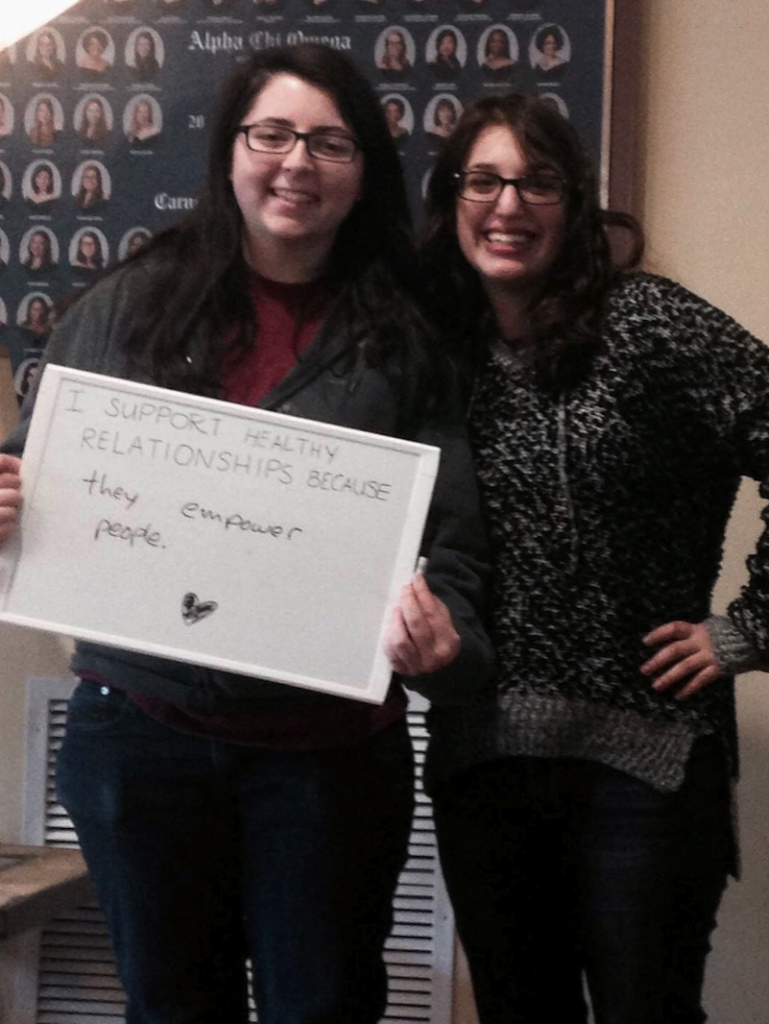 Alpha Chi Omega
20
Carn
I SUPPORT HEALTHY
RELATIONSHIPS BECAUSE
they empower
people.